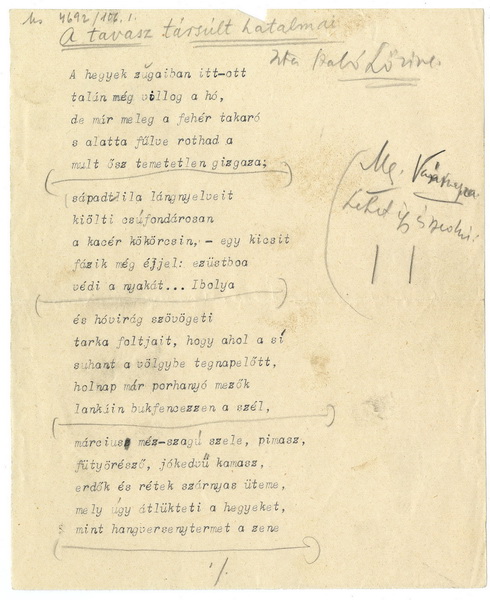 Ms 4692/106.1.
A tavasz társúlt hatalmai
Írta Szabó Lőrinc.
A hegyek zúgaiban itt-ott
talán még villog a hó,
de már meleg a fehér takaró
s alatta fűlve rothad a
mult ősz temetetlen gizgaza;
sápadtlila lángnyelveit
kiölti csúfondárosan
a kacér kökörcsin, - egy kicsit
fázik még éjjel: ezüstboa
védi a nyakát... Ibolya
és hóvirág szövögeti
tarka foltjait, hogy ahol a sí
suhant a völgybe tegnapelőtt,
holnap már porhanyó mezők
lankáin bukfencezzen a szél,
március méz-szagú szele, pimasz,
fütyörésző, jókedvű kamasz,
erdők és rétek szárnyas üteme,
mely úgy átlükteti a hegyeket,
mint hangversenytermet a zene
Lehet új
./.